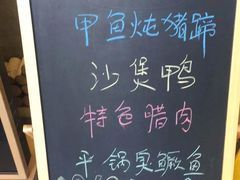 甲鱼炖猪蹄
沙煲鸭
特色腊肉
平锅臭鳜鱼